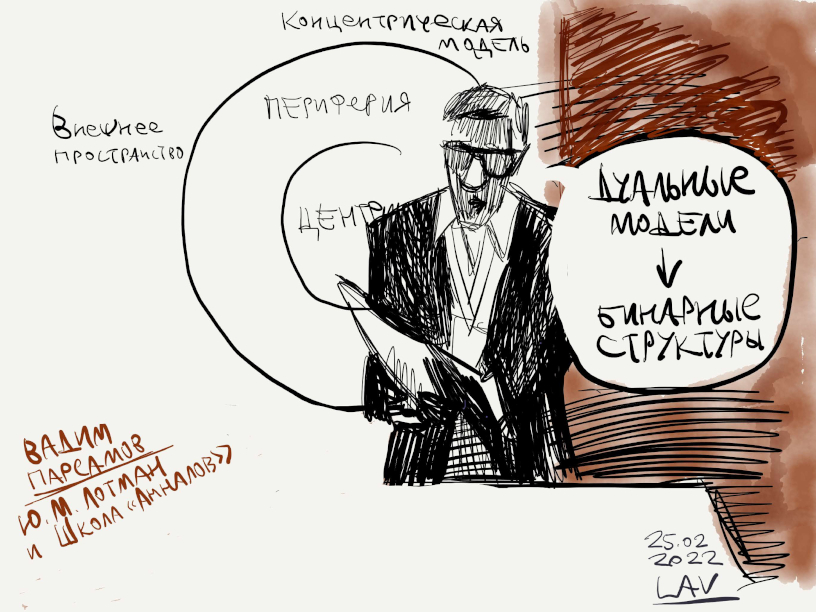 Концентрическая
модель
ПЕРИФЕРИЯ
Внешнее
пространство
ЦЕНТР
ДУАЛЬНЫЕ
МОДЕЛИ
↓
БИНАРНЫЕ
СТРУКТУРЫ
ВАДИМ
ПАРСАМОВ
Ю. М. ЛОТМАН
и ШКОЛА «АННАЛОВ»
25.02
2022
LAV